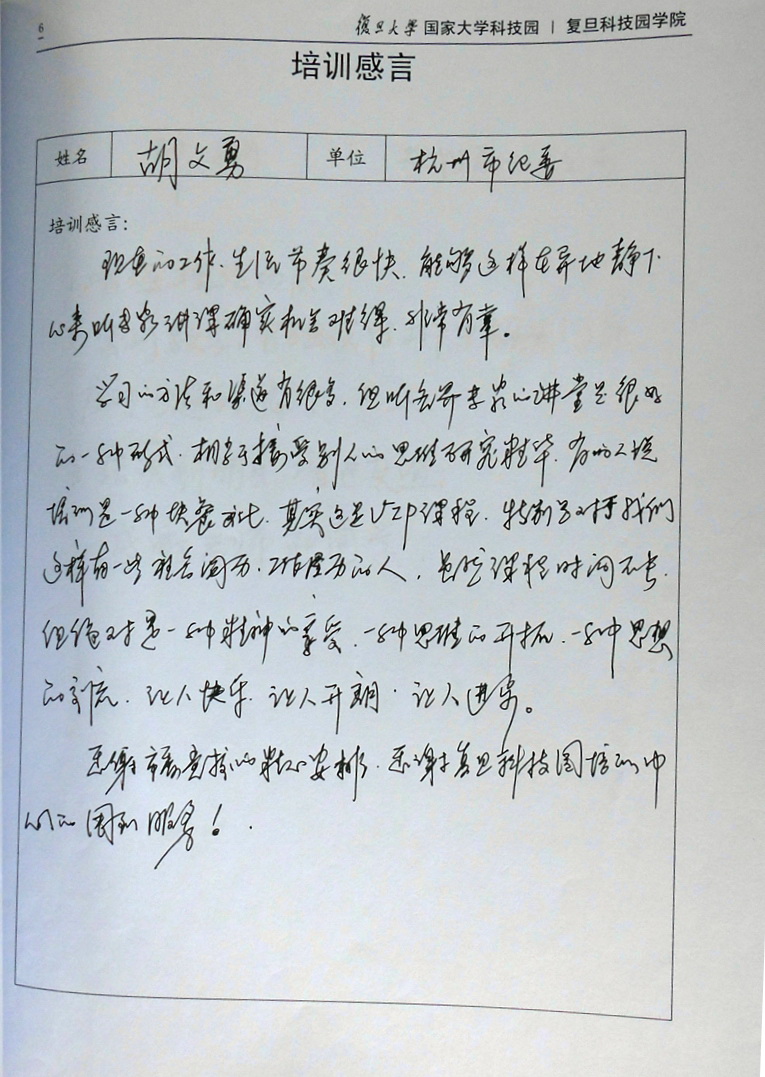 6
復旦大学 国家大学科技园 | 复旦科技园学院
培训感言
姓名 胡文勇 单位 杭州市纪委
培训感言:
现在的工作、生活节奏很快,能够这样在异地静下
心来听专家讲课确实机会难得,非常有幸。
学习的方法和渠道有很多,但听各界专家的讲堂是很好
的一种形式,相当于接受别人的思维研究精华,有的人说
培训是一种快餐文化,其实这是VIP课程,特别是对于我们
这样有一些社会阅历、工作履历的人,虽然课程时间不长,
但绝对是一种精神的享受,一种思维的开拓,一种思想
的交流,让人快乐,让人开朗,让人进步。
感谢市委党校的精心安排,感谢复旦科技园培训中
心的周到服务!